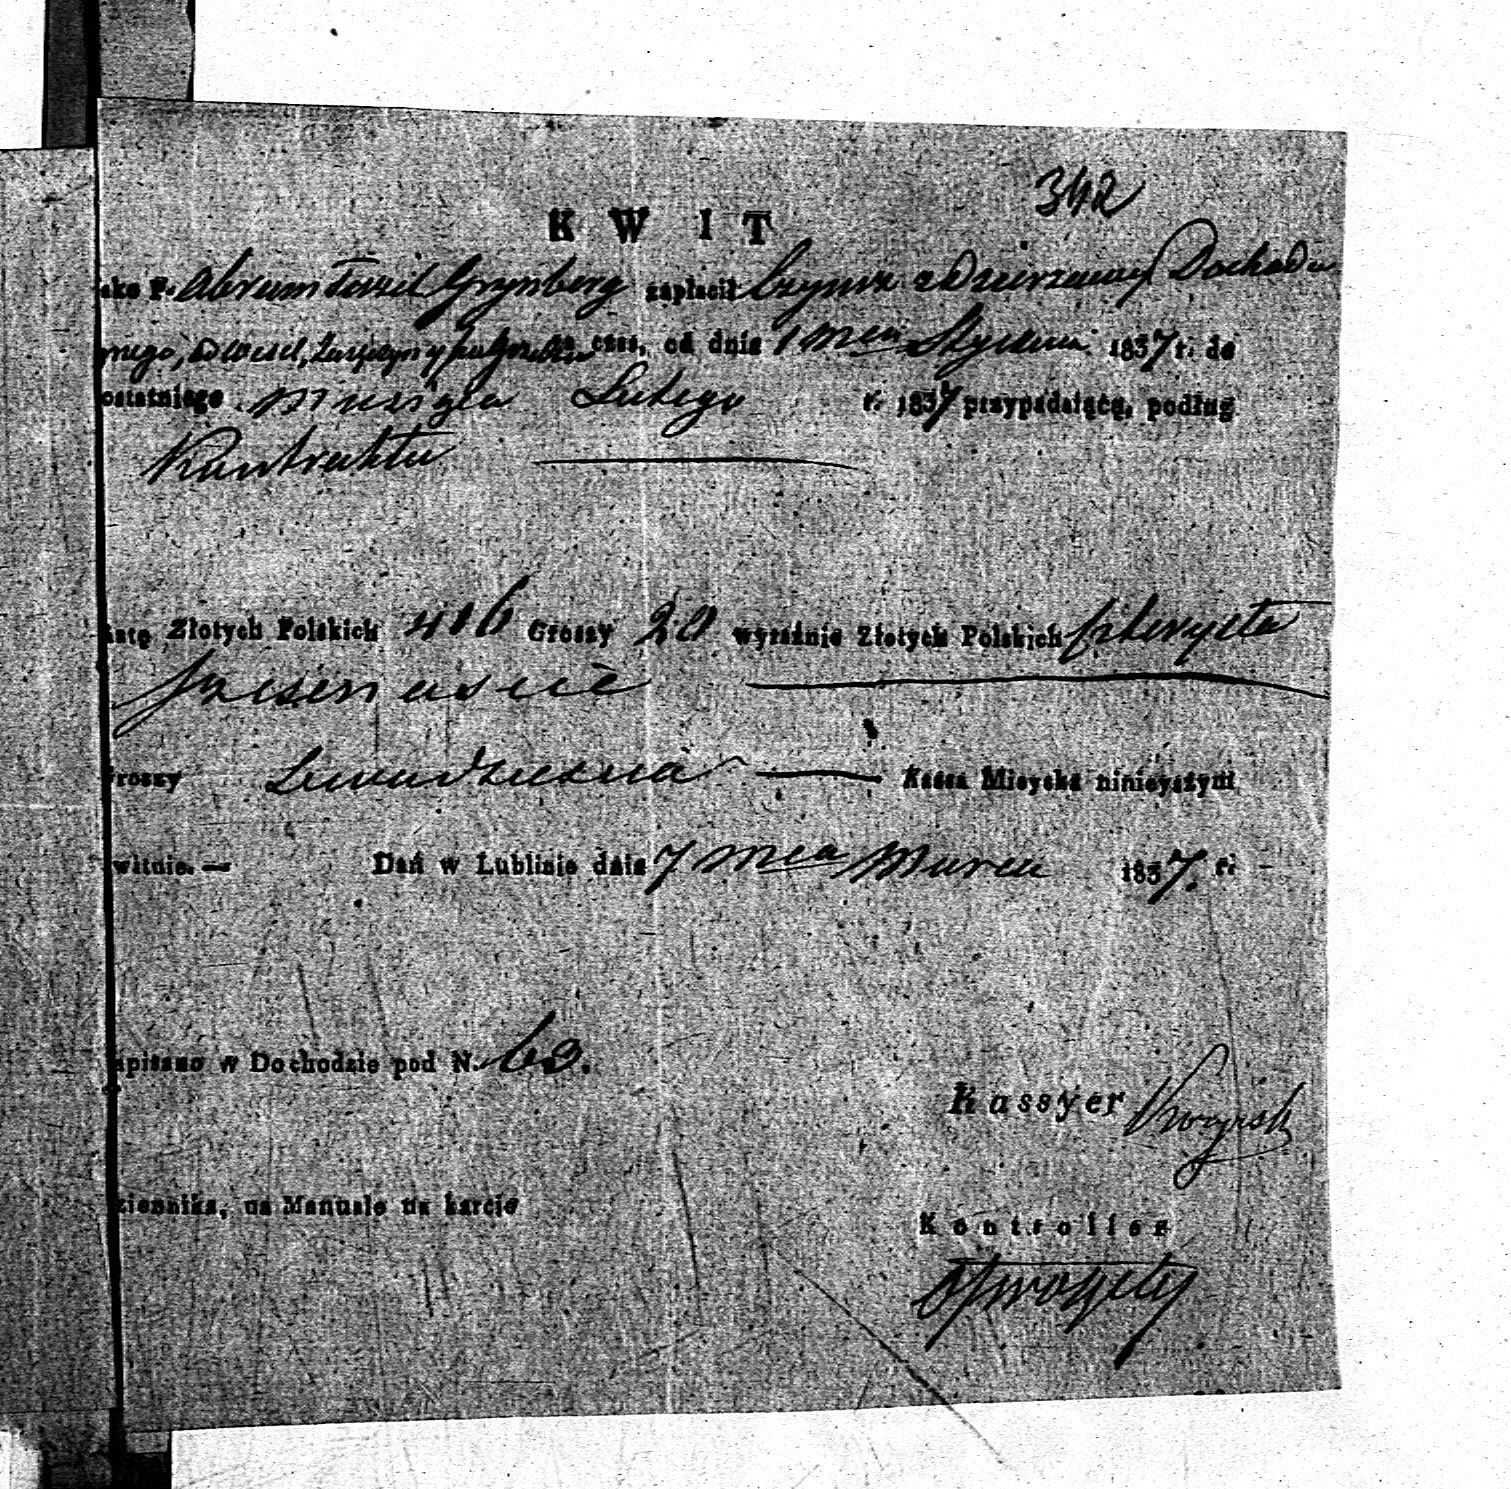 342
KWIT
ako P. Abram Joszil Grynberg zapłacił Czynsz z Dzierzawy Dochodu
nego, od Wesel, i za czas, od dnia 1 mca Stycznia 1837 r. do
ostatniego miesiąca Lutego r. 1837 przypadaiącą, podług
Kontraktu
Złotych Polskich 416 Groszy 20 wyraźnie Złotych Polskich czterysta
szesnascie
roszy dwadziescia Kassa Mieyska ninieyszym
witnie. — Dań w Lublinie dnia 7 mca Marca 1837. r:
apisano w Dochodzie pod N. 63.
Kassyer
ziennika, na Manuale na karcie
Kontroller